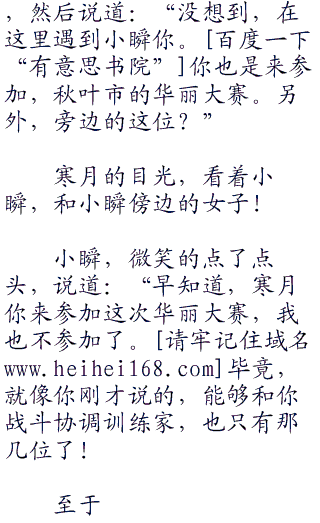 ，然后说道：“没想到，在
这里遇到小瞬你。[百度一下
“有意思书院”]你也是来参
加，秋叶市的华丽大赛。另
外，旁边的这位？”
寒月的目光，看着小
瞬，和小瞬傍边的女子！
小瞬，微笑的点了点
头，说道：“早知道，寒月
你来参加这次华丽大赛，我
也不参加了。[请牢记住域名
www.heihei168.com]毕竟，
就像你刚才说的，能够和你
战斗协调训练家，也只有那
几位了！
至于